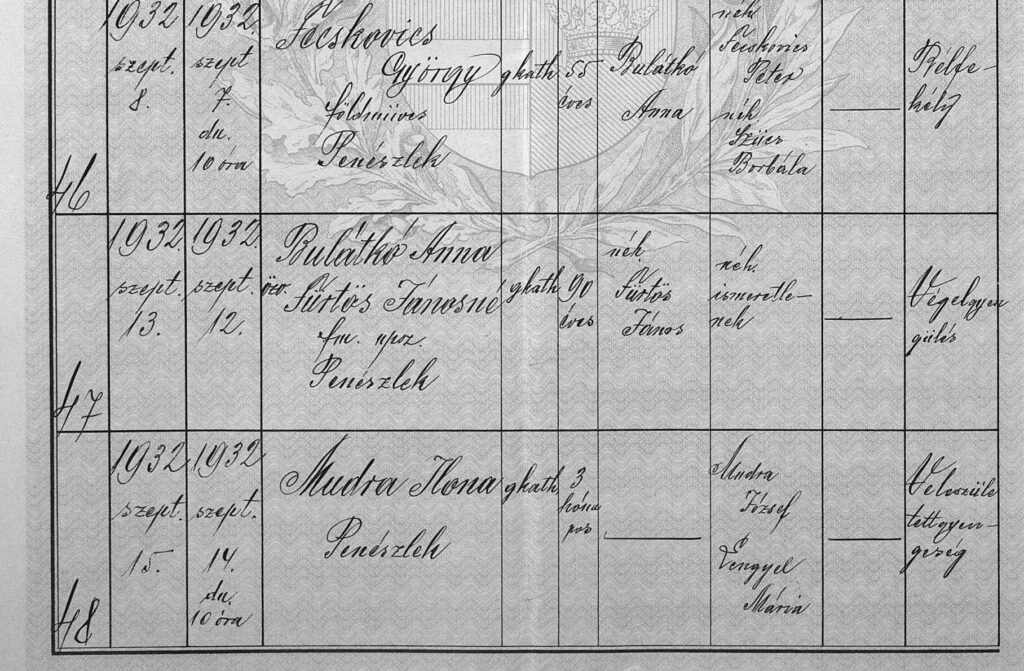 46
1932
szept.
8.
1932.
szept
7.
du.
10 óra
Fecskovics
György
földmüves
Penészlek
gkath
55
éves
Bulátkó
Anna
néh
Fecskovics
Péter
néh.
Szücs
Borbála
Bélfe-
kély
47
1932.
szept.
13.
1932.
szept.
12.
Bulátkó Anna
özv. Fürtös Jánosné
fm. npsz.
Penészlek
gkath
90
éves
néh.
Fürtös
János
néh.
ismeretle-
nek
Végelgyen
gülés
48
1932
szept.
15.
1932
szept.
14.
du.
10 óra
Mudra Ilona
Penészlek
gkath
3
hóna
pos
Mudra
József
Lengyel
Mária
Veleszüle
tettgyen-
geség